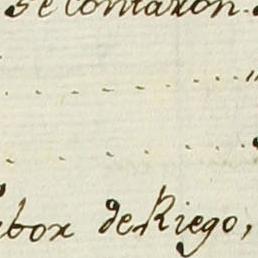 se contaron.
. . . . . . . . "
. . . . . . . .
abor de Riego,